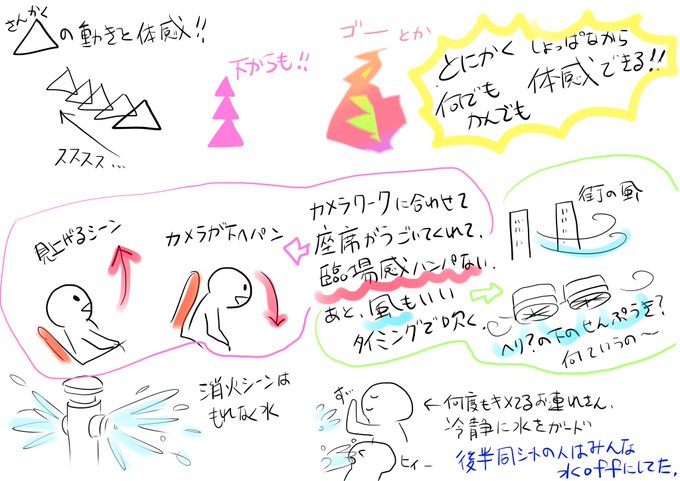 さんかく
△の動きと体感!!
スススス...
下からも!!
ゴーとか
とにかく しょっぱなから
何でも 体感できる!!
かんでも
見上げるシーン
カメラが下へパン
カメラワークに合わせて
座席がうごいてくれて、
臨場感ハンパない。
あと、風もいい
タイミングで吹く。
街の風
ヘリ?の下のせんぷうき?
何ていうの〜
消火シーンは
もれなく水
ずっ
ヒィー
←何度もキメてるお連れさん。
冷静に水をガード
後半同シートの人はみんな
水offにしてた。